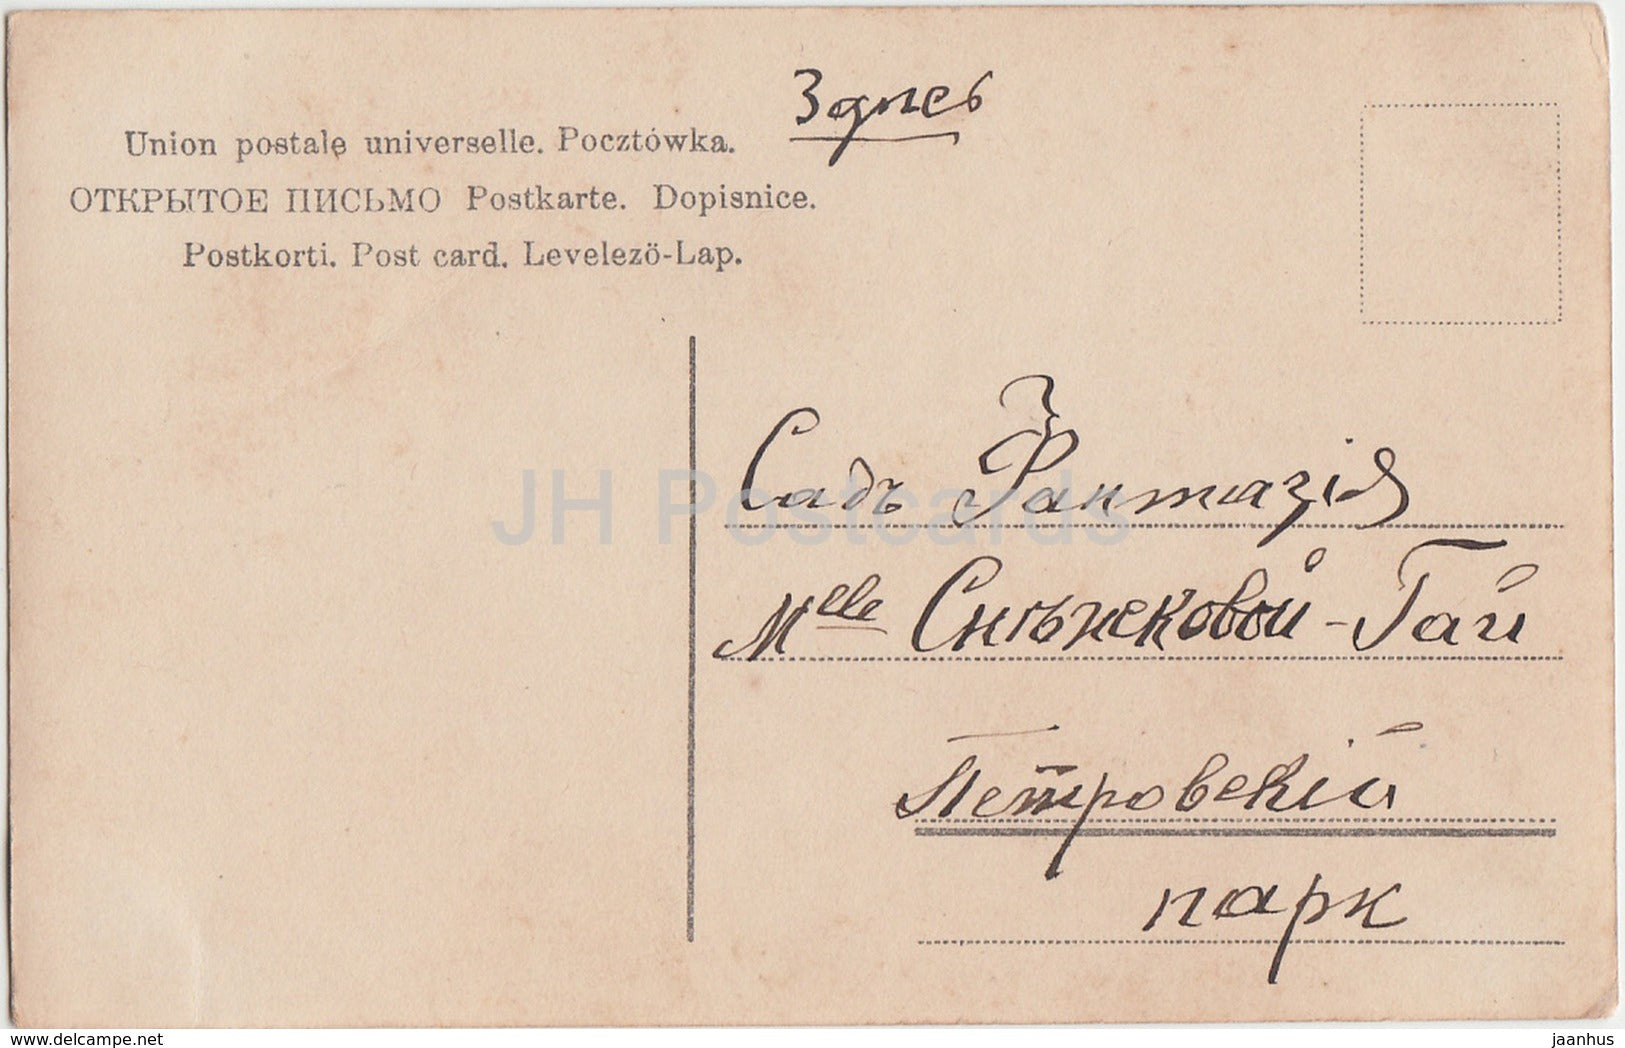 Здесь
Union postale universelle. Pocztówka.
ОТКРЫТОЕ ПИСЬМО Postkarte. Dopisnice.
Postkorti. Post card. Levelezö-Lap.
Садъ Фантазія
Mlle Снѣжковой-Гай
Петровскій
паркъ
JH Postcards
www.delcampe.net
jaanhus